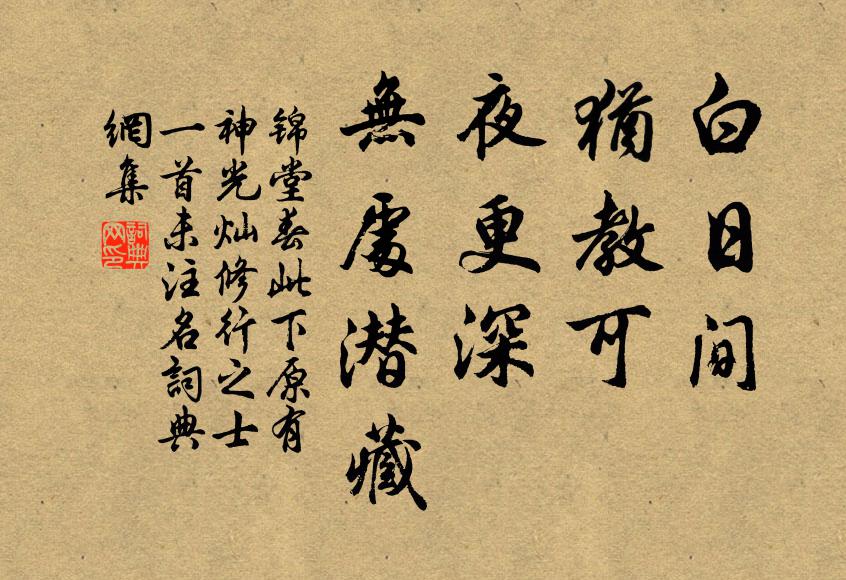 白日间
猶教可
夜更深
無處潜藏
锦堂春此下原有
神光灿修行之士
一首未注名詞典
網集
詞典
网印